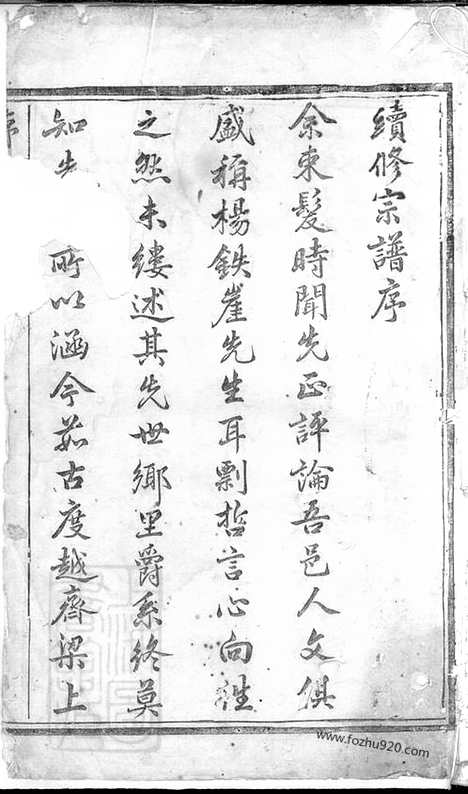 續修宗譜序
余束髮時聞先正評論吾邑人文俱
盛稱楊鉄崖先生耳剽哲言心向往
之然未縷述其先世鄉里爵系終莫
知先所以涵今茹古度越齊梁上
序
www.fozhu920.com